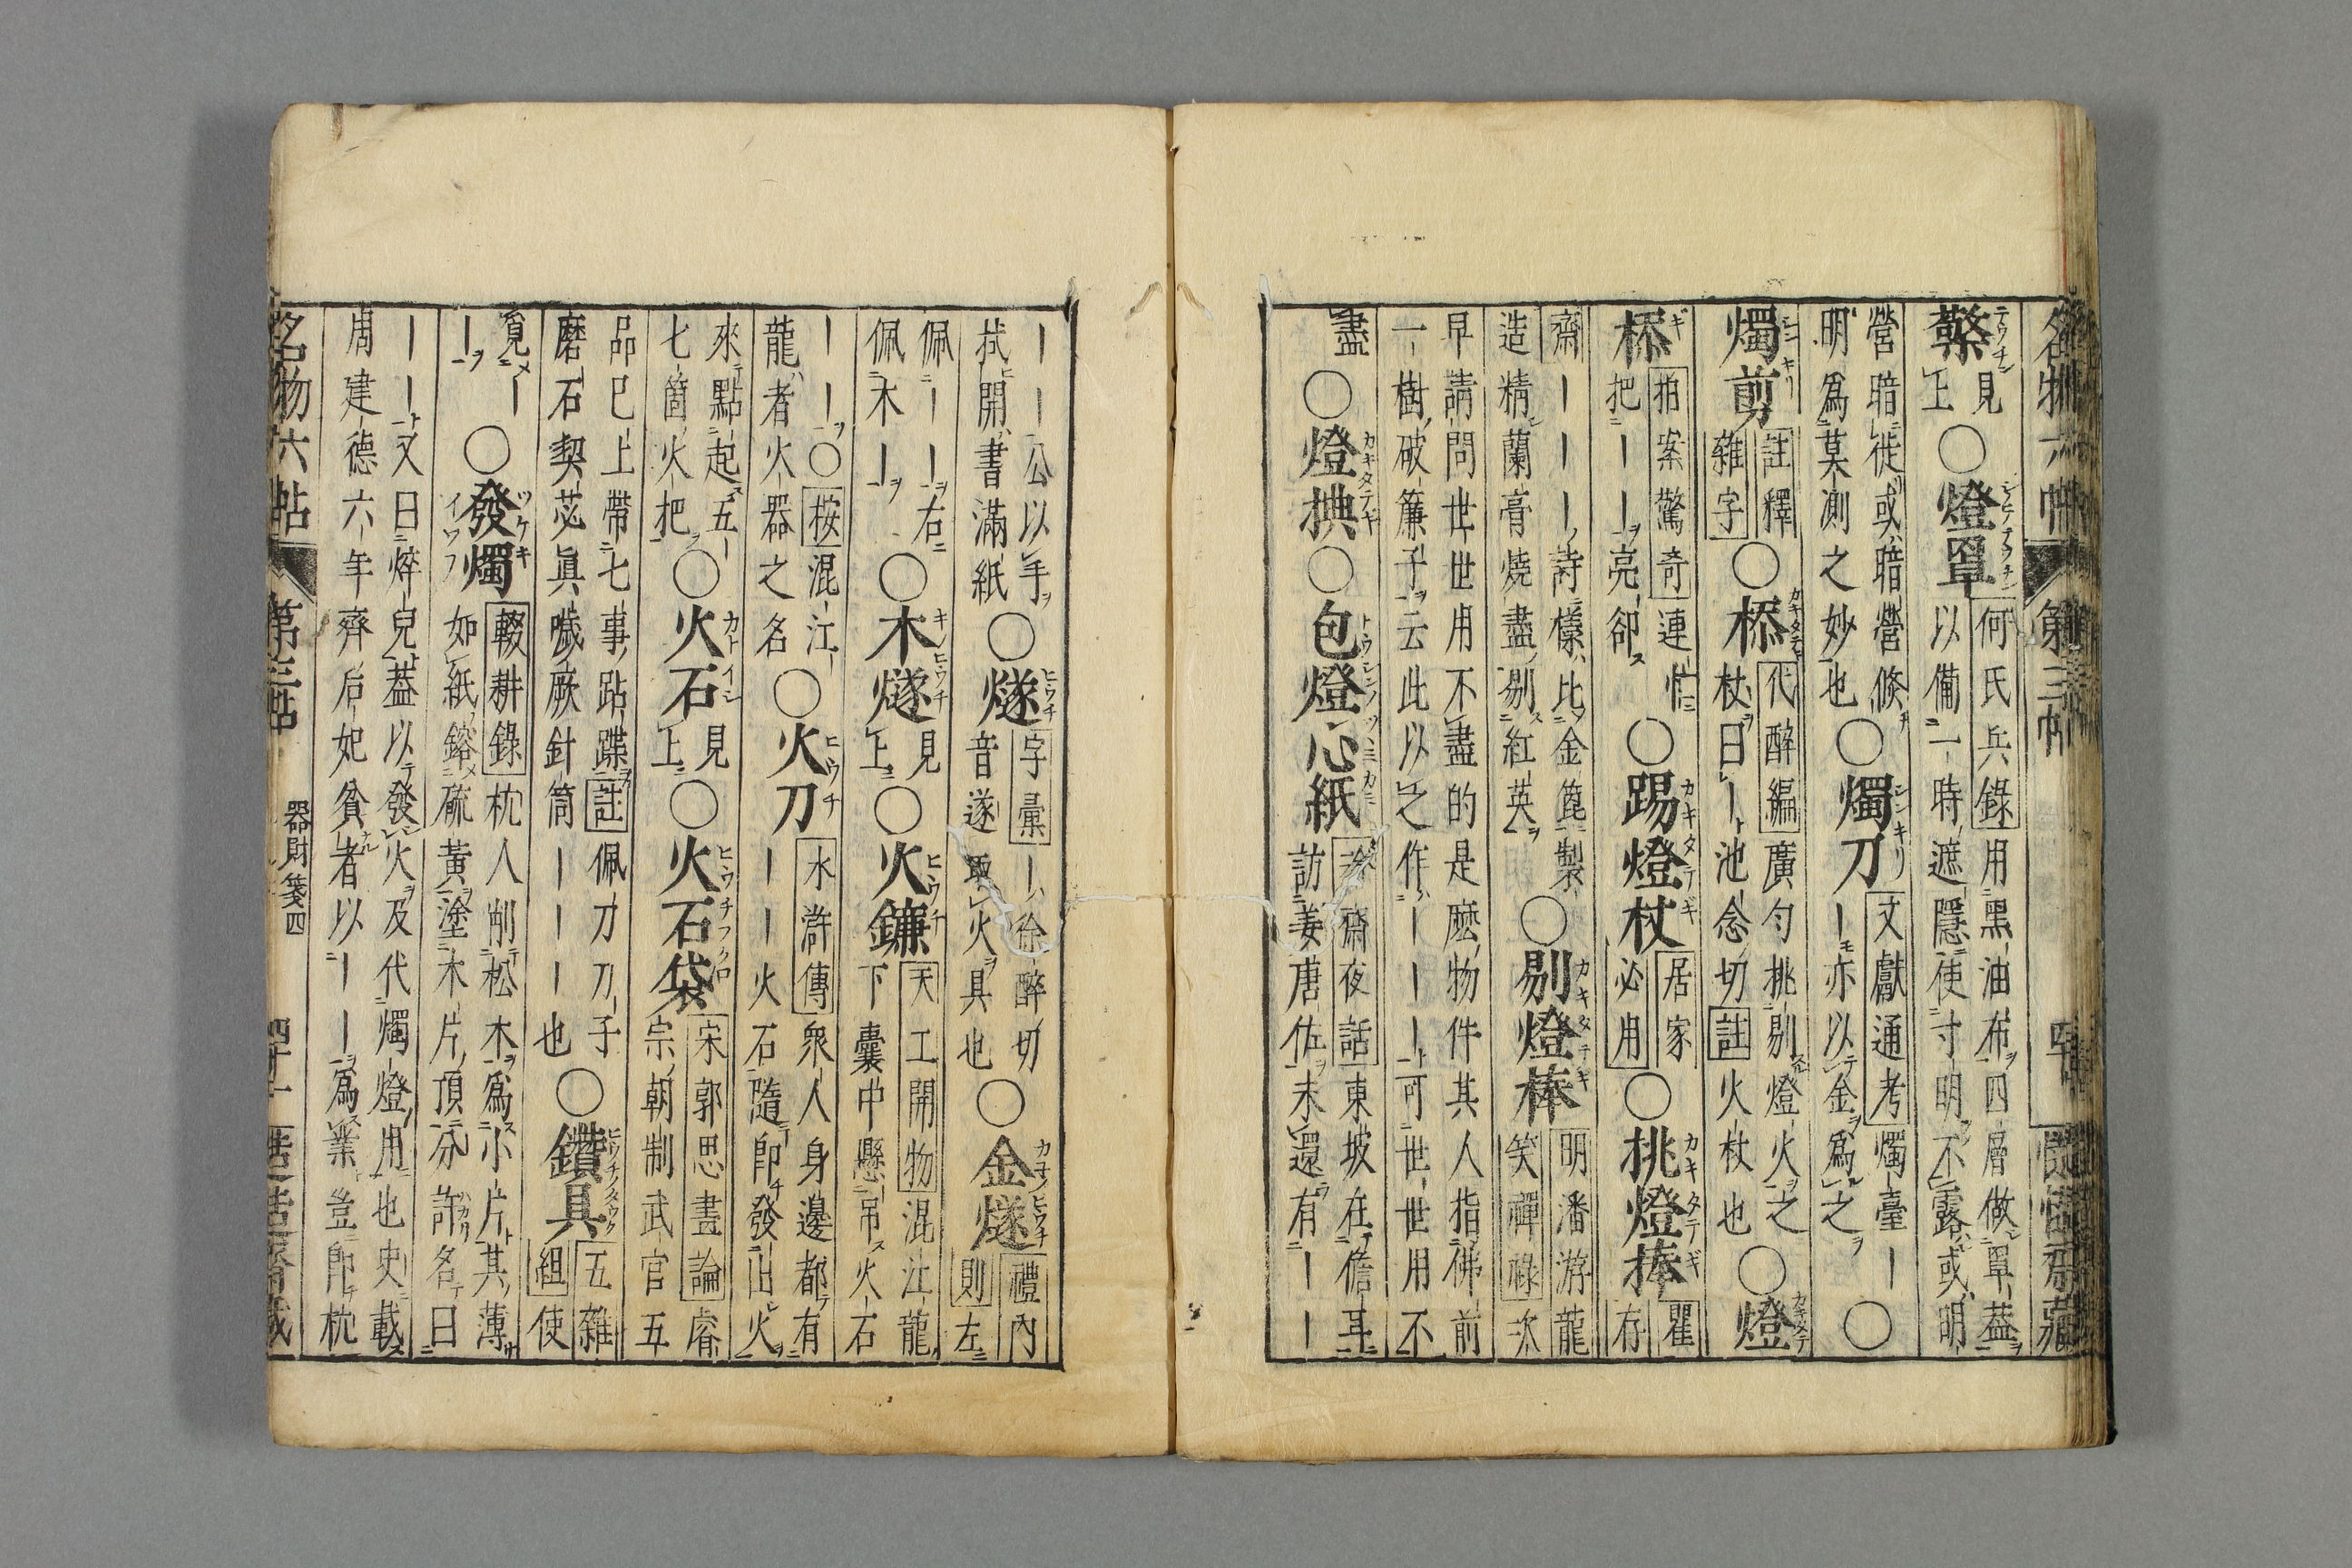 名物六帖 第三帖
檠 見上 ○燈罩 何氏兵錄 用黑油布四層做罩盖
以備一時遮隱使寸明不露或明
營暗徙或暗營倏
明爲莫測之妙也 ○燭刀 文獻通考 燭臺ー
ー亦以金爲之 ○
燭剪 註釋雜字 ○㮇 代醉編 廣勺挑剔燈火之
杖曰ー池念切 註 火杖也 ○燈
㮇 拍案驚奇 連忙
把ーー亮卻 ○踢燈杖 居家必用 ○挑燈棒 瞿存
齋ーーー詩檨比金篦製
造精蘭膏燒盡剔紅英 ○剔燈棒 明潘游龍笑禪祿 次
早請問世世用不盡的是麽物件其人指佛前
一樹破簾子云此以之作ーーー可世世用不
盡 ○燈㨫 ○包燈心紙 冷齋夜話 東坡在儋耳
訪姜唐佐未還有ーー
ーー公以手
拭開書滿紙 ○燧 字彙 ー徐醉切
音遂取火具也 ○金燧 禮內則 左
佩ーー右
佩木ー ○木燧 見上 ○火鐮 天工開物 混江龍
下囊中懸吊火石
ーー○ 按 混江
龍者火器之名 ○火刀 水滸傳 衆人身邊都有
ーーー火石隨即發出火
來點起五
七箇火把 ○火石 見上 ○火石袋 宋郭思畫論 睿
宗朝制武官五
品已上帶七事跕蹀 註 佩刀刀子
磨石契苾眞噦厥針筒ーーー也 ○鑽具 五雜組 使
覓ー
ー ○發燭 輟耕錄 杭人削松木爲小片其薄
如紙鎔硫黃塗木片頂分許名曰
ーー又曰焠兒盖以發火及代燭燈用也史載
周建德六年齊后妃貧者以ーー爲業豈即杭
名物六帖 第三帖 器財箋四 四十一